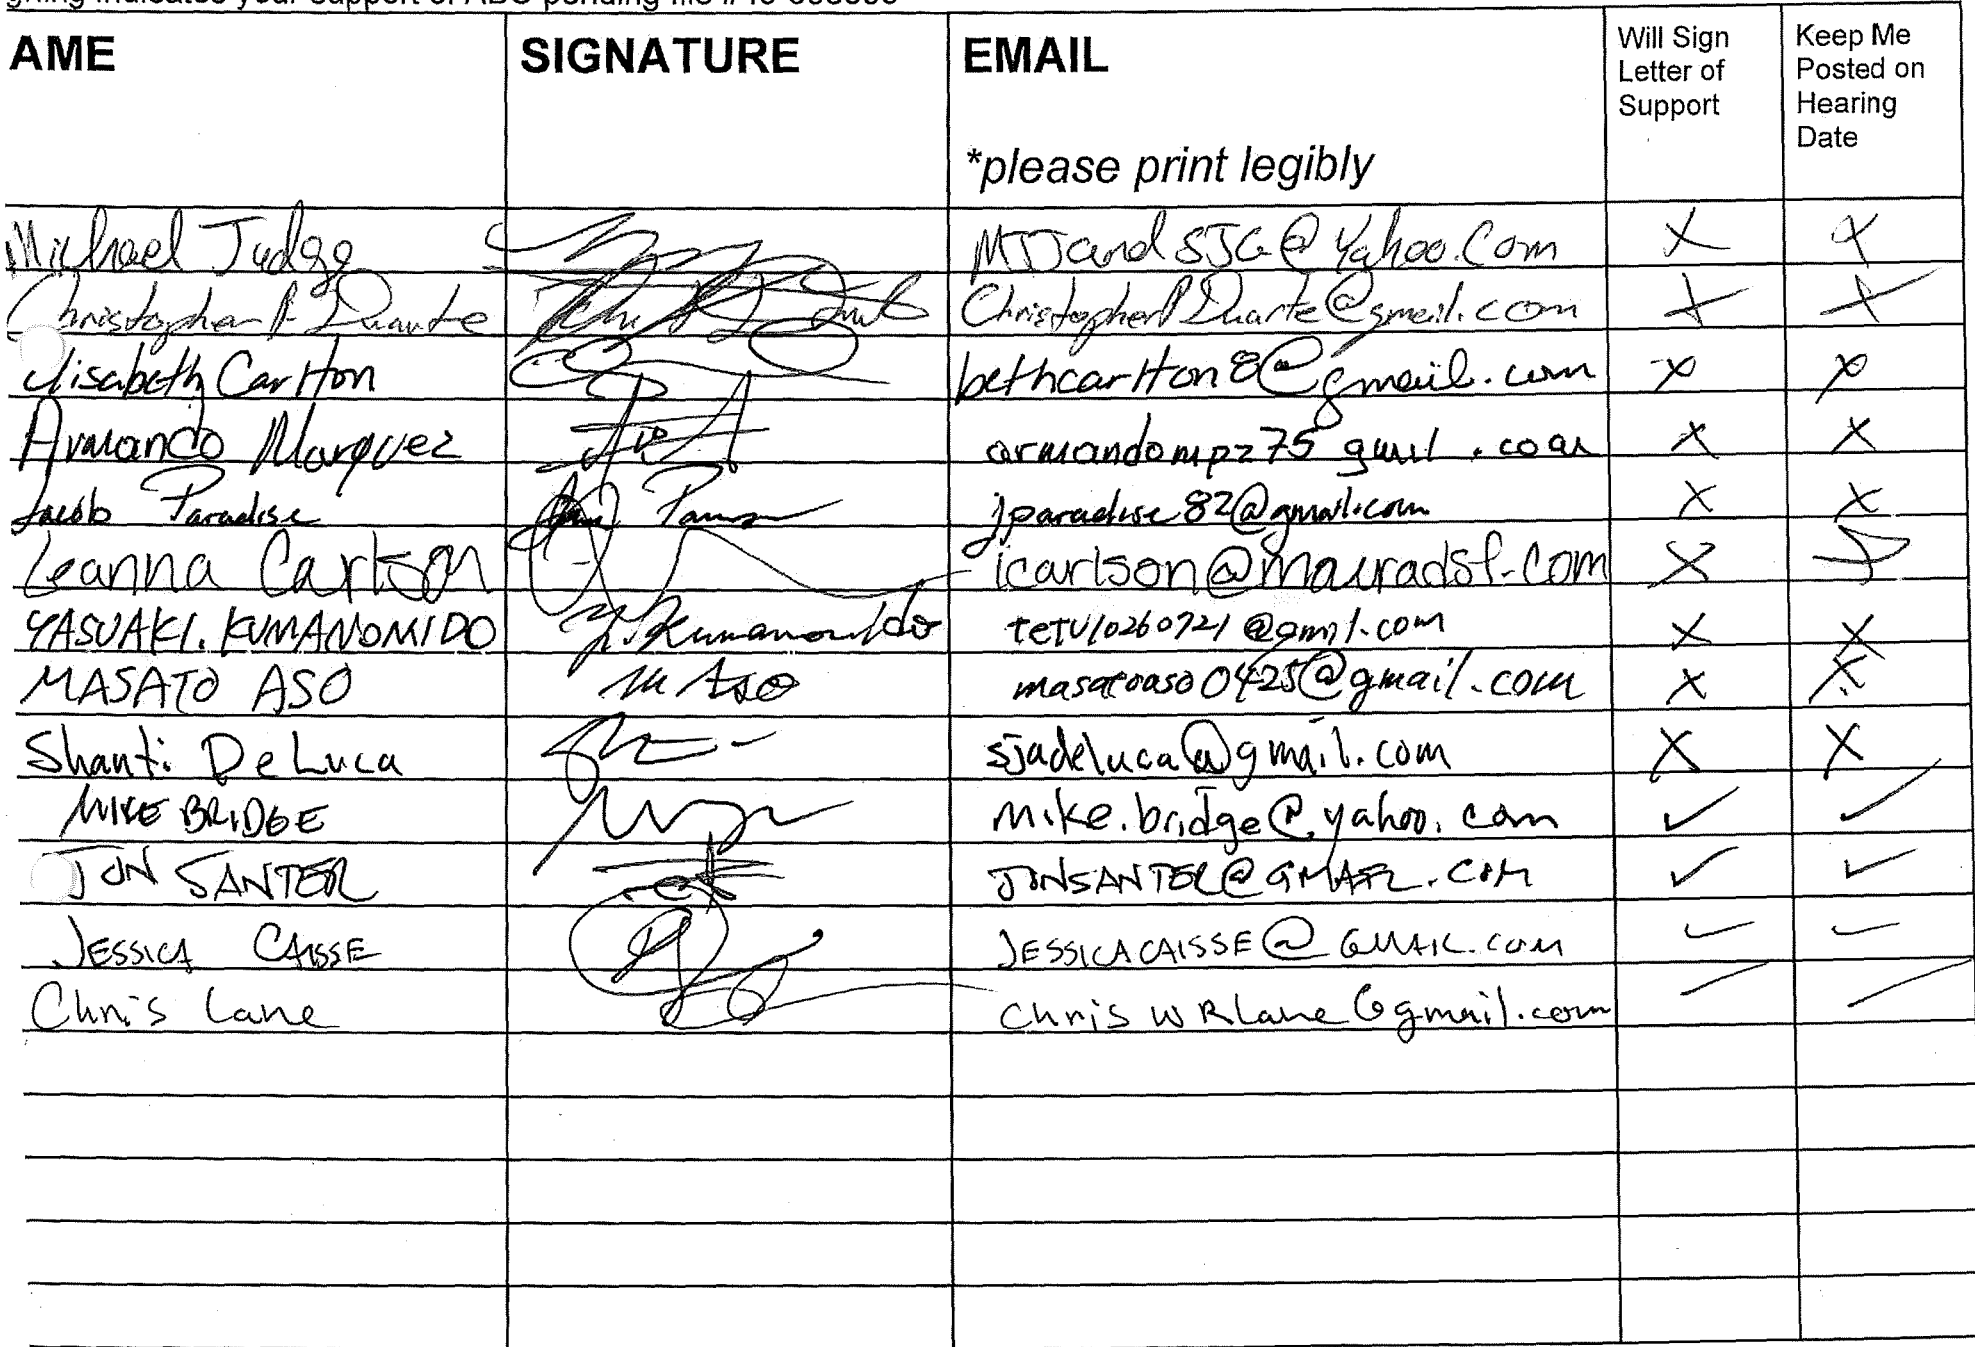 AME SIGNATURE EMAIL Will Sign Letter of Support Keep Me Posted on Hearing Date
*please print legibly
Michael Judge MJJandSJG@Yahoo.Com X X
Christopher P Duarte ChristopherPDuarte@gmail.com X X
lisabeth Carlton bethcarlton8@gmail.com X X
Armando Marquez armandompz75 gmil.com X X
Jacob Paradise jparadise82@gmail.com X X
Leanna Carlson lcarlson@mouradsf.com X X
YASUAKI.KUMANOMIDO Y.Kumanomido tetu10260721@gmil.com X X
MASATO ASO M Aso masatoaso0425@gmail.com X X
Shanti DeLuca sjadeluca@gmail.com X X
MIKE BRIDGE mike.bridge@yahoo.com ✓ ✓
JON SANTER JONSANTER@GMAIL.COM ✓ ✓
JESSICA CAISSE JESSICACAISSE@GMAIL.COM ✓ ✓
Chris Lane ChrisWRLane@gmail.com